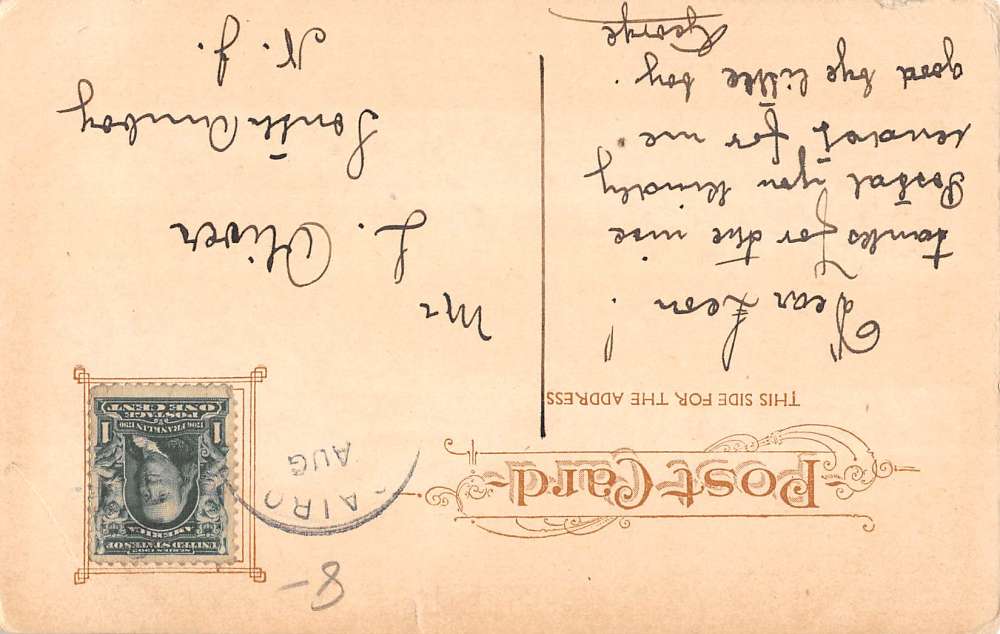 Post Card
THIS SIDE FOR THE ADDRESS
Dear Leon!
tanks for the nice
Postal you kindly
sendet for me.
good bye little boy.
George
8-
AIRO
AUG
SERIES 1902
UNITED STATES OF
AMERICA
1706 FRANKLIN 1790
1 POSTAGE 1
ONE CENT
Mr
L. Oliver
South Amboy
N. J.